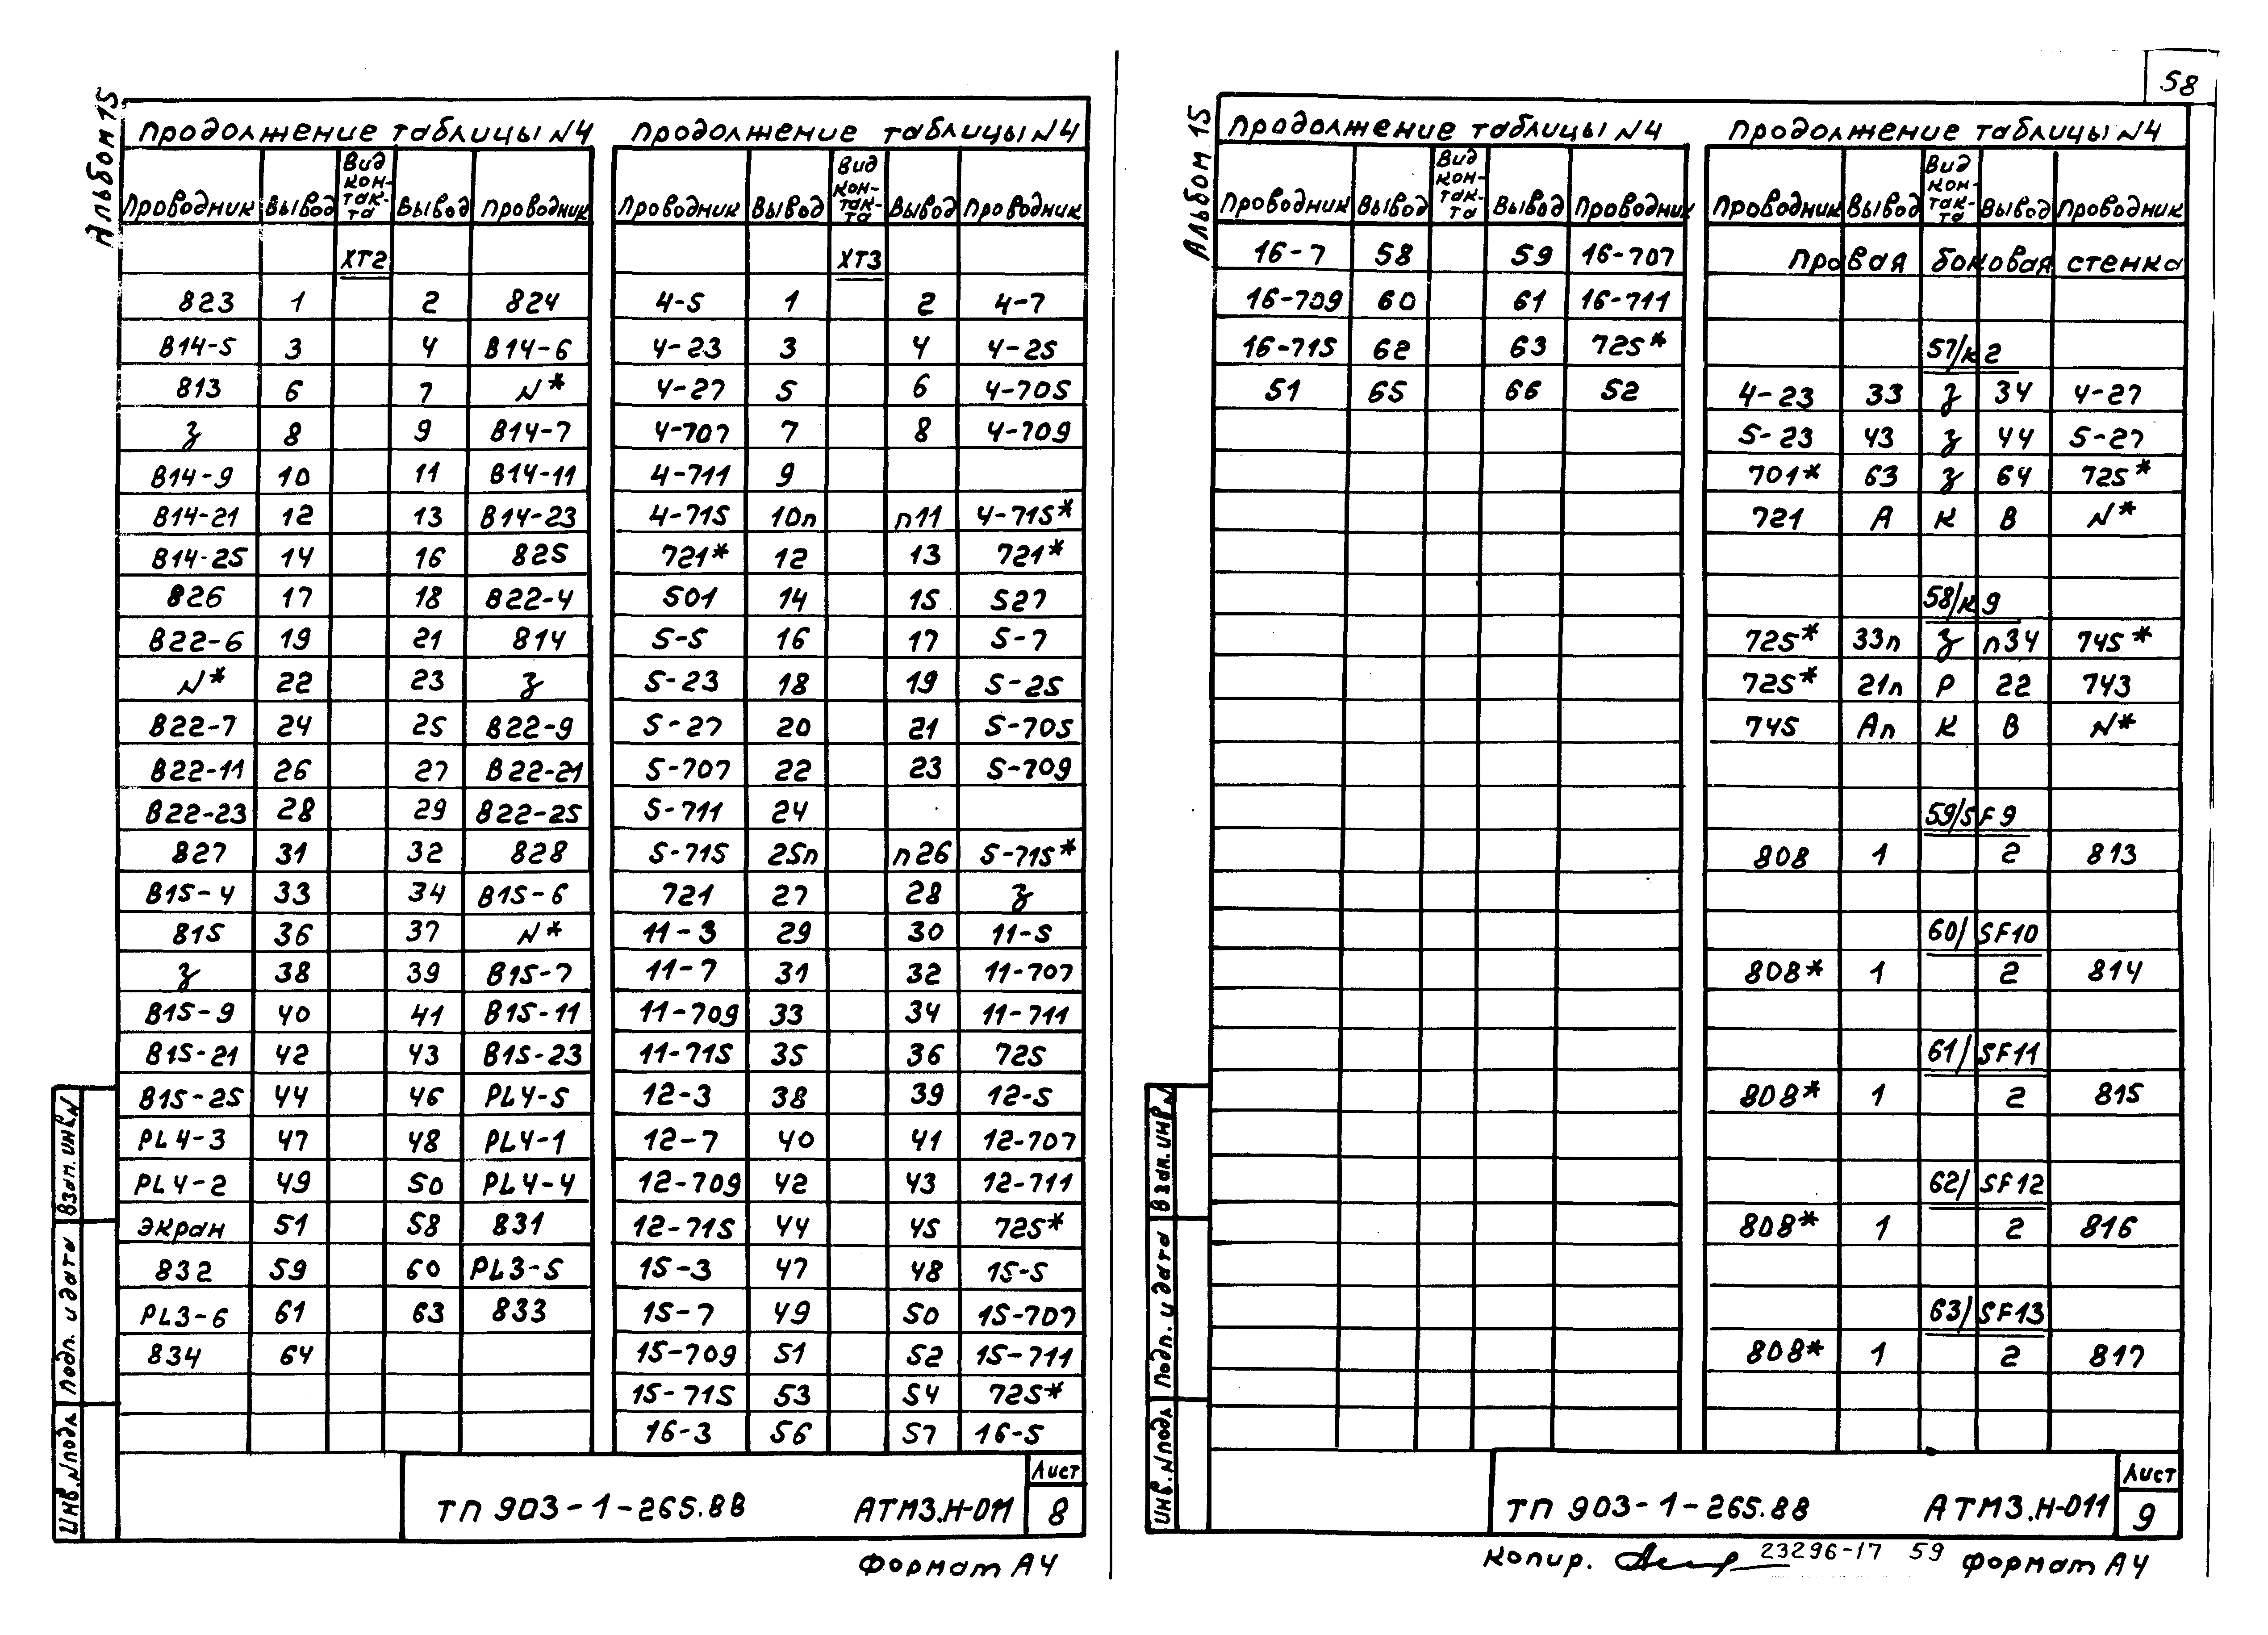 58
Альбом 15
Продолжение таблицы N4
Проводник Вывод Вид контакта Вывод Проводник
ХТ2
823 1 2 824
В14-5 3 4 В14-6
813 6 7 N*
З 8 9 В14-7
В14-9 10 11 В14-11
В14-21 12 13 В14-23
В14-25 14 16 825
826 17 18 В22-4
В22-6 19 21 814
N* 22 23 З
В22-7 24 25 В22-9
В22-11 26 27 В22-21
В22-23 28 29 В22-25
827 31 32 828
В15-4 33 34 В15-6
815 36 37 N*
З 38 39 В15-7
В15-9 40 41 В15-11
В15-21 42 43 В15-23
В15-25 44 46 PL4-5
PL4-3 47 48 PL4-1
PL4-2 49 50 PL4-4
экран 51 58 831
832 59 60 PL3-5
PL3-6 61 63 833
834 64
Продолжение таблицы N4
Проводник Вывод Вид контакта Вывод Проводник
ХТ3
4-5 1 2 4-7
4-23 3 4 4-25
4-27 5 6 4-705
4-707 7 8 4-709
4-711 9
4-715 10п п11 4-715*
721* 12 13 721*
501 14 15 527
5-5 16 17 5-7
5-23 18 19 5-25
5-27 20 21 5-705
5-707 22 23 5-709
5-711 24
5-715 25п п26 5-715*
721 27 28 З
11-3 29 30 11-5
11-7 31 32 11-707
11-709 33 34 11-711
11-715 35 36 725
12-3 38 39 12-5
12-7 40 41 12-707
12-709 42 43 12-711
12-715 44 45 725*
15-3 47 48 15-5
15-7 49 50 15-707
15-709 51 52 15-711
15-715 53 54 725*
16-3 56 57 16-5
Взам. инв. N
Подп. и дата
Инв. N подл
ТП 903-1-265.88 АТМ3.Н-011
Лист
8
Формат А4
Альбом 15
Продолжение таблицы N4
Проводник Вывод Вид контакта Вывод Проводник
16-7 58 59 16-707
16-709 60 61 16-711
16-715 62 63 725*
51 65 66 52
Продолжение таблицы N4
Проводник Вывод Вид контакта Вывод Проводник
Правая боковая стенка
57/К2
4-23 33 З 34 4-27
5-23 43 З 44 5-27
701* 63 З 64 725*
721 А К В N*
58/К9
725* 33п З п34 745*
725* 21п Р 22 743
745 Ап К В N*
59/SF9
808 1 2 813
60/SF10
808* 1 2 814
61/SF11
808* 1 2 815
62/SF12
808* 1 2 816
63/SF13
808* 1 2 817
Взам. инв. N
Подп. и дата
Инв. N подл
ТП 903-1-265.88 АТМ3.Н-011
Лист
9
Копир. 23296-17 59 Формат А4